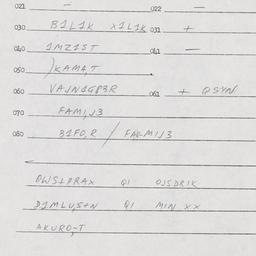 021 — 022 —
030 B1L1K X1L1K 031 +
040 1MZ1ST 041 —
050 )KAMA,T
060 VAJN1GP3R 061 + QSYN
070 FAMI,J3
080 B1FO,R / FAMIJ3
QI OJSDR1K
D1MLUS+N QI MIN XX
AKURO-T